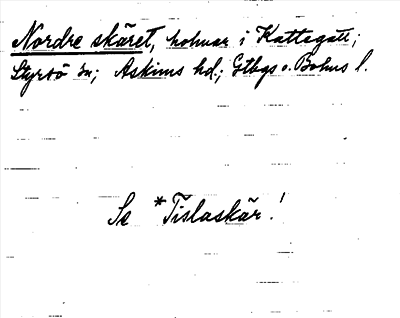 Nordre skäret, holmar i Kattegatt;
Styrsö sn; Askims hd; Gtbgs o. Bohus l.
Se *Tislaskär!